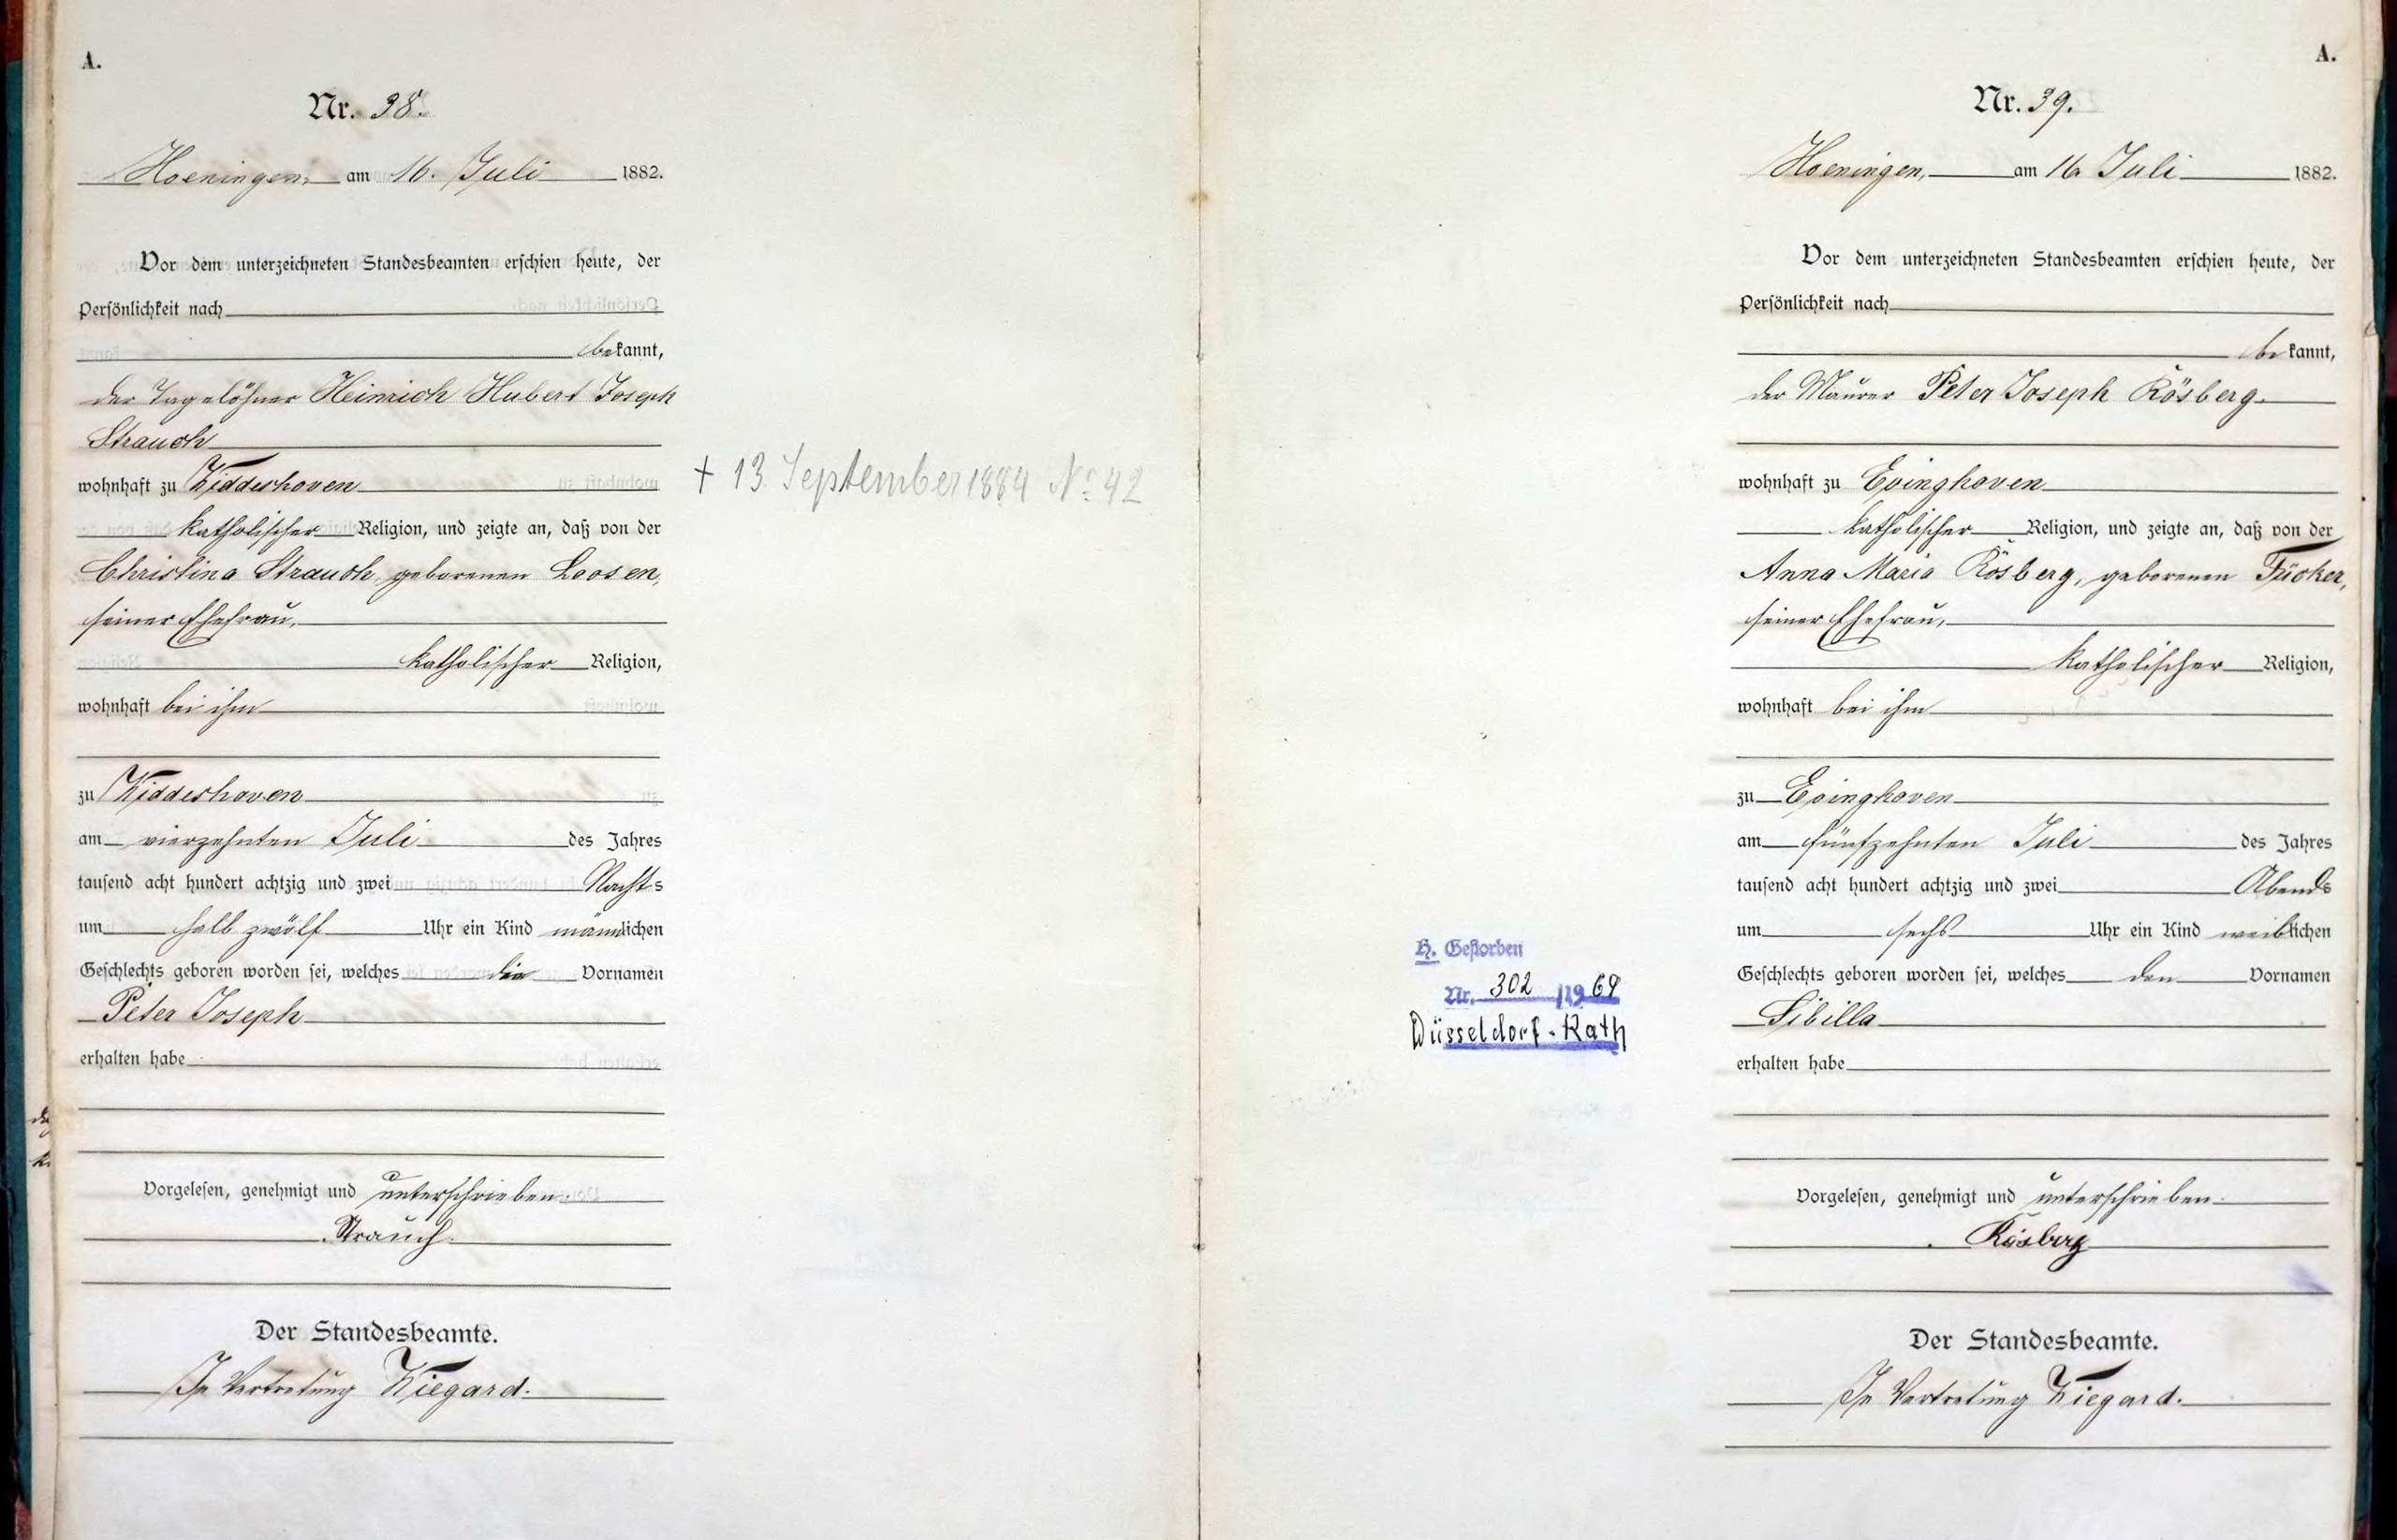 A.
Nr. 38.
Hoeningen, am 16. Juli 1882.
Vor dem unterzeichneten Standesbeamten erschien heute, der
Persönlichkeit nach
bekannt,
der Tagelöhner Heinrich Hubert Joseph
Strauch
wohnhaft zu Widdeshoven
katholischer Religion, und zeigte an, daß von der
Christina Strauch, geborenen Loosen,
seiner Ehefrau,
katholischer Religion,
wohnhaft bei ihm
zu Widdeshoven
am vierzehnten Juli des Jahres
tausend acht hundert achtzig und zwei Nachts
um halb zwölf Uhr ein Kind männlichen
Geschlechts geboren worden sei, welches die Vornamen
Peter Joseph
erhalten habe
Vorgelesen, genehmigt und unterschrieben.
Strauch.
Der Standesbeamte.
In Vertretung Wiegard.
† 13 September 1884 No 42
A.
Nr. 39.
Hoeningen, am 16 Juli 1882.
Vor dem unterzeichneten Standesbeamten erschien heute, der
Persönlichkeit nach
bekannt,
der Maurer Peter Joseph Rösberg.
wohnhaft zu Evinghoven
katholischer Religion, und zeigte an, daß von der
Anna Maria Rösberg, geborenen Fücker,
seiner Ehefrau,
katholischer Religion,
wohnhaft bei ihm
zu Evinghoven
am fünfzehnten Juli des Jahres
tausend acht hundert achtzig und zwei Abends
um sechs Uhr ein Kind weiblichen
Geschlechts geboren worden sei, welches den Vornamen
Sibilla
erhalten habe
Vorgelesen, genehmigt und unterschrieben.
Rösberg
Der Standesbeamte.
In Vertretung Wiegard.
H. Gestorben
Nr. 302 /1969
Düsseldorf-Rath